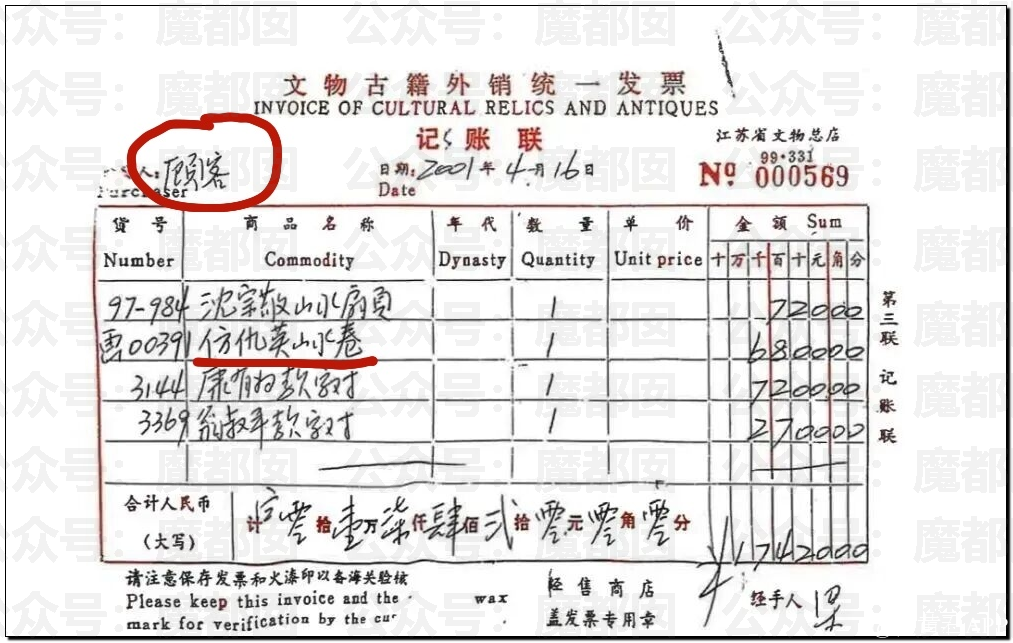 公众号：魔都囡
文物古籍外销统一发票
INVOICE OF CULTURAL RELICS AND ANTIQUES
记账联
江苏省文物总店
人：顾客
Purchaser
日期：2001年4月16日
Date
99·331
Nº 000569
货号 商品名称 年代 数量 单价 金额 Sum
Number Commodity Dynasty Quantity Unit price 十万千百十元角分
97-984 沈宗敬山水扇页 1 72000
00391 仿仇英山水卷 1 680000
3144 康有为款字对 1 720000
3369 翁叔平款字对 1 270000
第三联 记账联
合计人民币
（大写）
计 零拾壹万柒仟肆佰贰拾零元零角零分 1742000
请注意保存发票和火漆印以备海关验核
Please keep this invoice and the wax
mark for verification by the
经售商店
盖发票专用章
经手人 梁